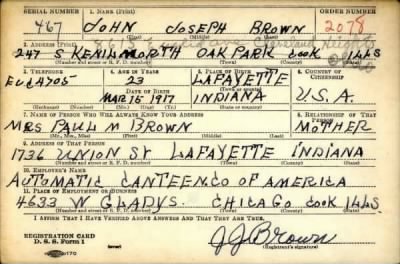 SERIAL NUMBER 1. NAME (Print) ORDER NUMBER
467 JOHN JOSEPH BROWN 2078
2. ADDRESS (Print)
247 S KENILWORTH OAK PARK COOK ILLS
3. TELEPHONE 4. AGE IN YEARS 5. PLACE OF BIRTH 6. COUNTRY OF CITIZENSHIP
EUC 4705 23 LAFAYETTE
DATE OF BIRTH
MAR 15 1917 INDIANA U.S.A.
7. NAME OF PERSON WHO WILL ALWAYS KNOW YOUR ADDRESS 8. RELATIONSHIP OF THAT PERSON
MRS PAUL M BROWN MOTHER
9. ADDRESS OF THAT PERSON
1736 UNION ST LAFAYETTE INDIANA
10. EMPLOYER'S NAME
AUTOMATIC CANTEEN CO OF AMERICA
11. PLACE OF EMPLOYMENT OR BUSINESS
4633 W GLADYS. CHICAGO COOK ILLS.
I AFFIRM THAT I HAVE VERIFIED ABOVE ANSWERS AND THAT THEY ARE TRUE.
REGISTRATION CARD
D. S. S. Form 1 (over) JJBrown
(Registrant's signature)